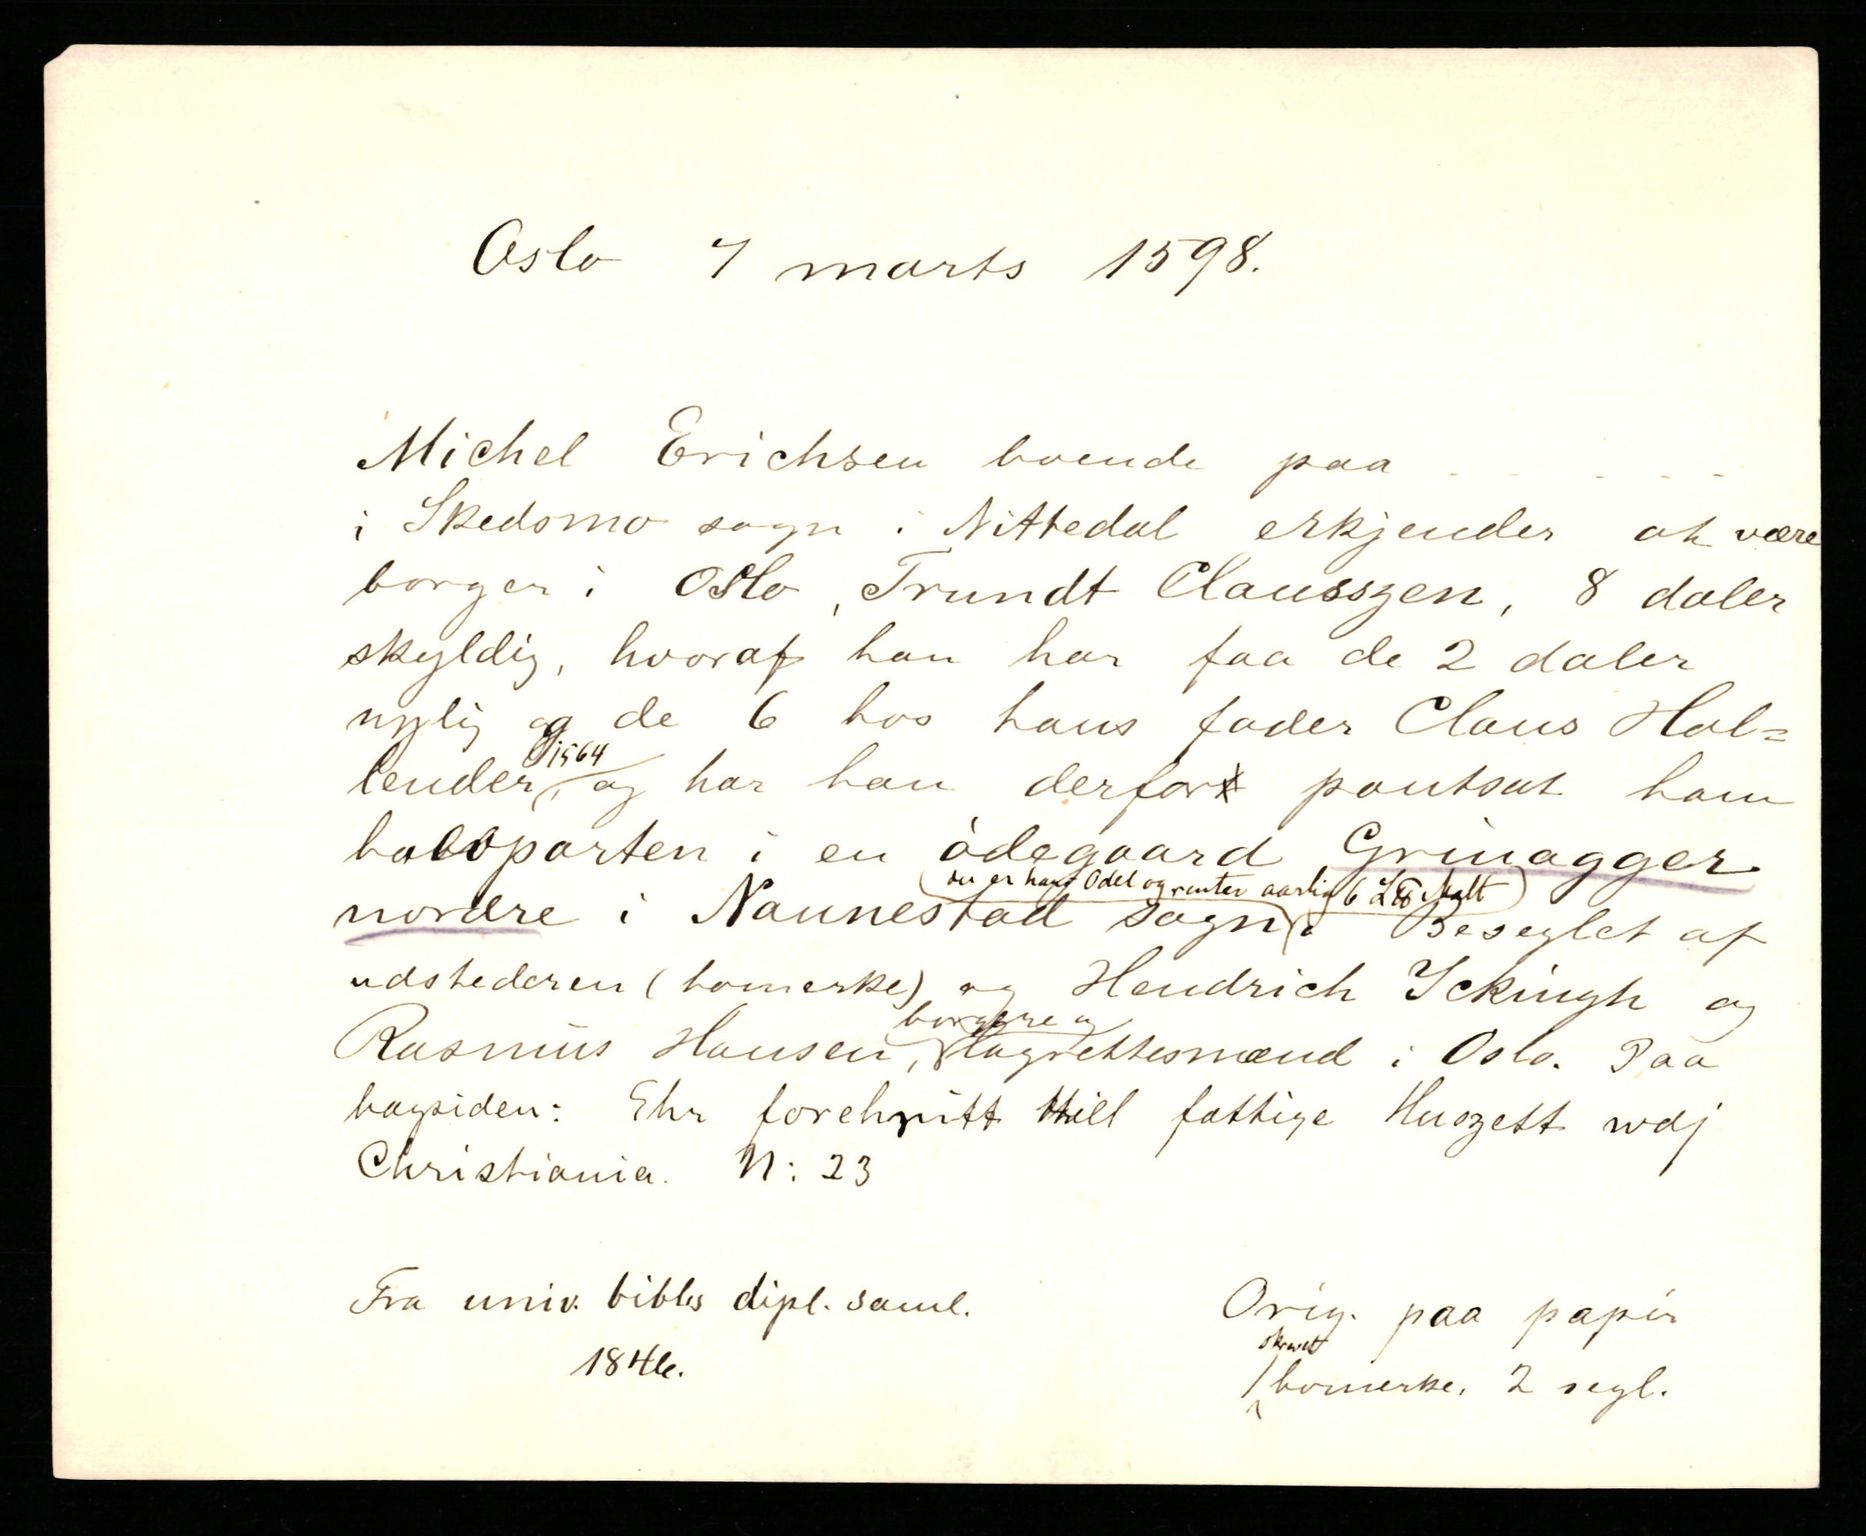 Oslo 7 marts 1598.
Michel Erichsen boende paa - - - - -
i Skedsmo sogn i Nittedal erkjender at være
borger i Oslo, Trundt Clausszen, 8 daler
skyldig, hvoraf han har faa de 2 daler
nylig og de 6 hos hans fader Claus Hol=
lender, i 1564 og har han derfor pantsat ham
halvparten i en ödegaard Grinagger
nordre i Nannestad sogn (den er hans Odel og renter aarlig 6 L℔ Malt). Beseglet af
udstederen (bomerke) og Hendrich Yckingh og
Rasmus Hansen, borgere og lagrettesmænd i Oslo. Paa
bagsiden: Ehr forehritt till fattige Huszett wdj
Christiania. N: 23
Fra univ. bibl.s dipl. saml.
1846.
Orig. paa papir
1 skrevet bomerke, 2 segl.